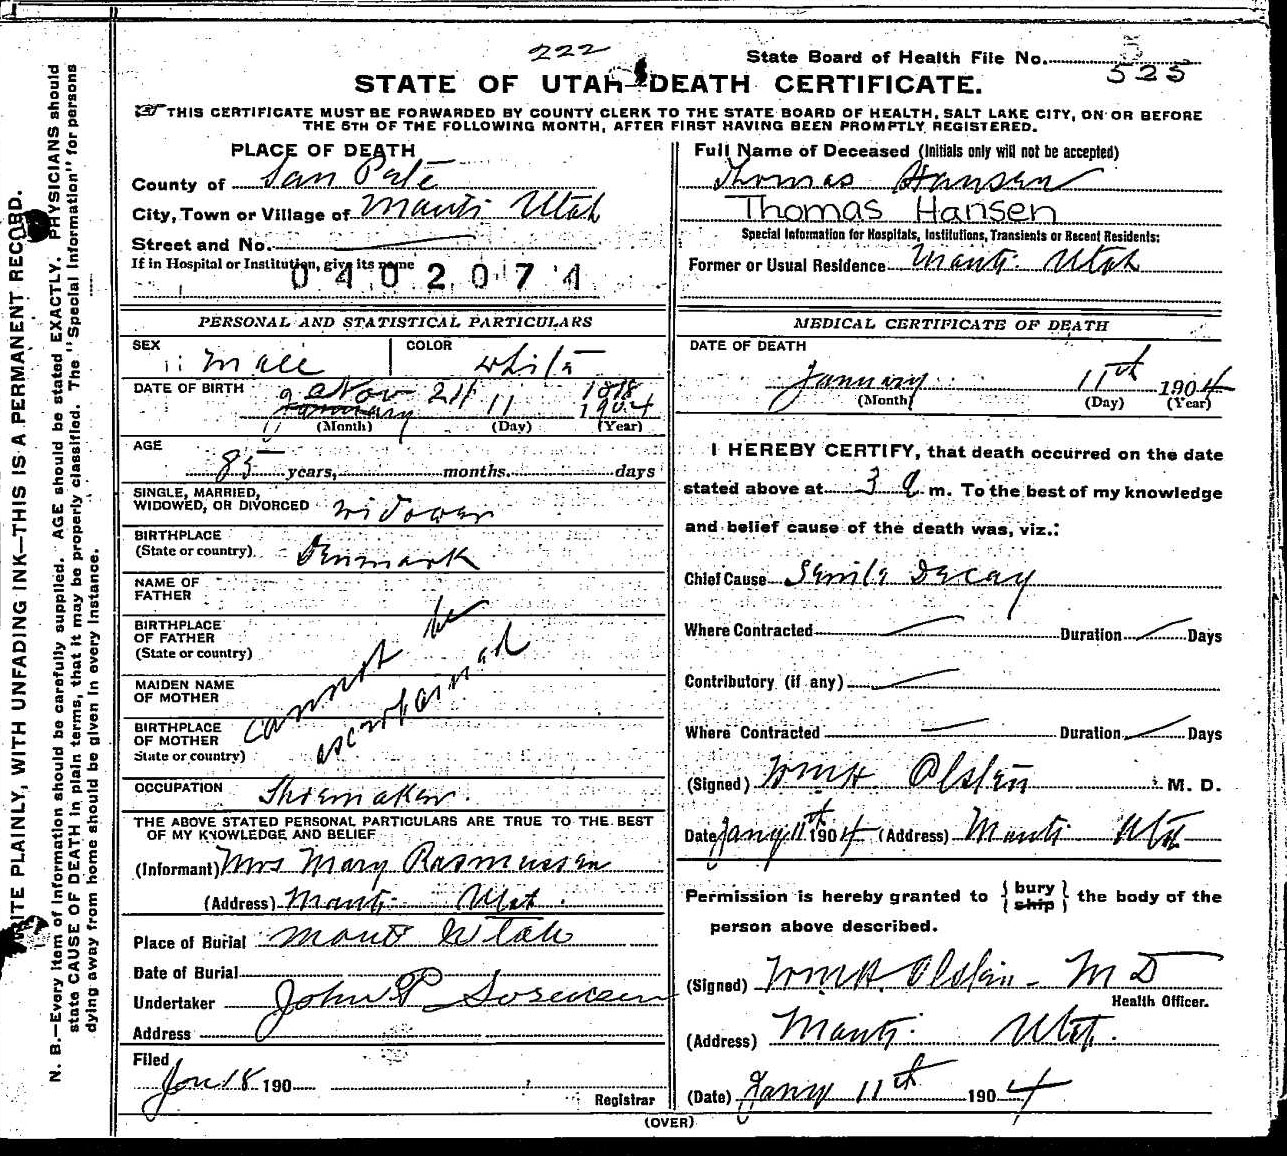 222
State Board of Health File No. 525
STATE OF UTAH—DEATH CERTIFICATE.
THIS CERTIFICATE MUST BE FORWARDED BY COUNTY CLERK TO THE STATE BOARD OF HEALTH, SALT LAKE CITY, ON OR BEFORE
THE 5TH OF THE FOLLOWING MONTH, AFTER FIRST HAVING BEEN PROMPTLY REGISTERED.
WRITE PLAINLY, WITH UNFADING INK—THIS IS A PERMANENT RECORD.
N. B.—Every item of information should be carefully supplied. AGE should be stated EXACTLY. PHYSICIANS should
state CAUSE OF DEATH in plain terms, that it may be properly classified. The "Special Information" for persons
dying away from home should be given in every instance.
PLACE OF DEATH
County of San Pete
City, Town or Village of Manti Utah
Street and No.
If in Hospital or Institution, give its name
0402074
PERSONAL AND STATISTICAL PARTICULARS
SEX Male COLOR white
DATE OF BIRTH Nov 24 1818
January 11 1904
(Month) (Day) (Year)
AGE
85 years, months. days
SINGLE, MARRIED,
WIDOWED, OR DIVORCED widower
BIRTHPLACE
(State or country) Denmark
NAME OF
FATHER
BIRTHPLACE
OF FATHER
(State or country)
cannot be
ascertained
MAIDEN NAME
OF MOTHER
BIRTHPLACE
OF MOTHER
State or country)
OCCUPATION Shoemaker.
THE ABOVE STATED PERSONAL PARTICULARS ARE TRUE TO THE BEST
OF MY KNOWLEDGE AND BELIEF
(Informant) Mrs Mary Rasmussen
(Address) Manti Utah.
Place of Burial Manti Utah
Date of Burial
Undertaker John P Sorensen
Address
Filed
Jan 18 190
Registrar
Full Name of Deceased (Initials only will not be accepted)
Thomas Hansen
Thomas Hansen
Special Information for Hospitals, Institutions, Transients or Recent Residents:
Former or Usual Residence Manti Utah
MEDICAL CERTIFICATE OF DEATH
DATE OF DEATH
January 11th 1904
(Month) (Day) (Year)
I HEREBY CERTIFY, that death occurred on the date
stated above at 3 a m. To the best of my knowledge
and belief cause of the death was, viz.:
Chief Cause Senile Decay
Where Contracted Duration Days
Contributory (if any)
Where Contracted Duration Days
(Signed) Wm H. Olsten M. D.
Date Jany 11th 1904 (Address) Manti Utah
Permission is hereby granted to { bury ship } the body of the
person above described.
(Signed) Wm H. Olsten M D
Health Officer.
(Address) Manti Utah.
(Date) Jany 11th 1904
(OVER)